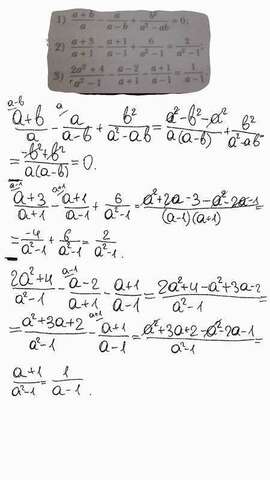 1) (a+b)/a − a/(a−b) + b²/(a²−ab) = 0;
2) (a+3)/(a+1) − (a+1)/(a−1) + 6/(a²−1) = 2/(a²−1);
3) (2a²+4)/(a²−1) − (a−2)/(a+1) − (a+1)/(a−1) = 1/(a−1)
a−b a
(a+b)/a − a/(a−b) + b²/(a²−ab) = (a²−b²−a²)/(a(a−b)) + b²/(a²−ab)
= (−b²+b²)/(a(a−b)) = 0.
a−1 a+1
(a+3)/(a+1) − (a+1)/(a−1) + 6/(a²−1) = (a²+2a−3−a²−2a−1)/((a−1)(a+1))
= −4/(a²−1) + 6/(a²−1) = 2/(a²−1).
a−1
(2a²+4)/(a²−1) − (a−2)/(a+1) − (a+1)/(a−1) = (2a²+4−a²+3a−2)/(a²−1)
a+1
= (a²+3a+2)/(a²−1) − (a+1)/(a−1) = (a²+3a+2−a²−2a−1)/(a²−1) =
(a+1)/(a²−1) = 1/(a−1).